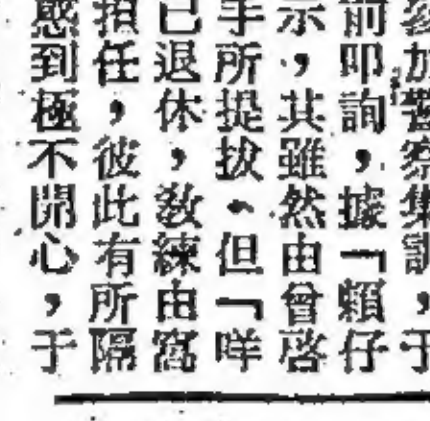 參加警察集訓，于
前叩詢，據「賴仔
示，其雖然由曾啓
手所提拔。但「咩
已退休，敎練由窩
擔任，彼此有所隔
感到極不開心，于